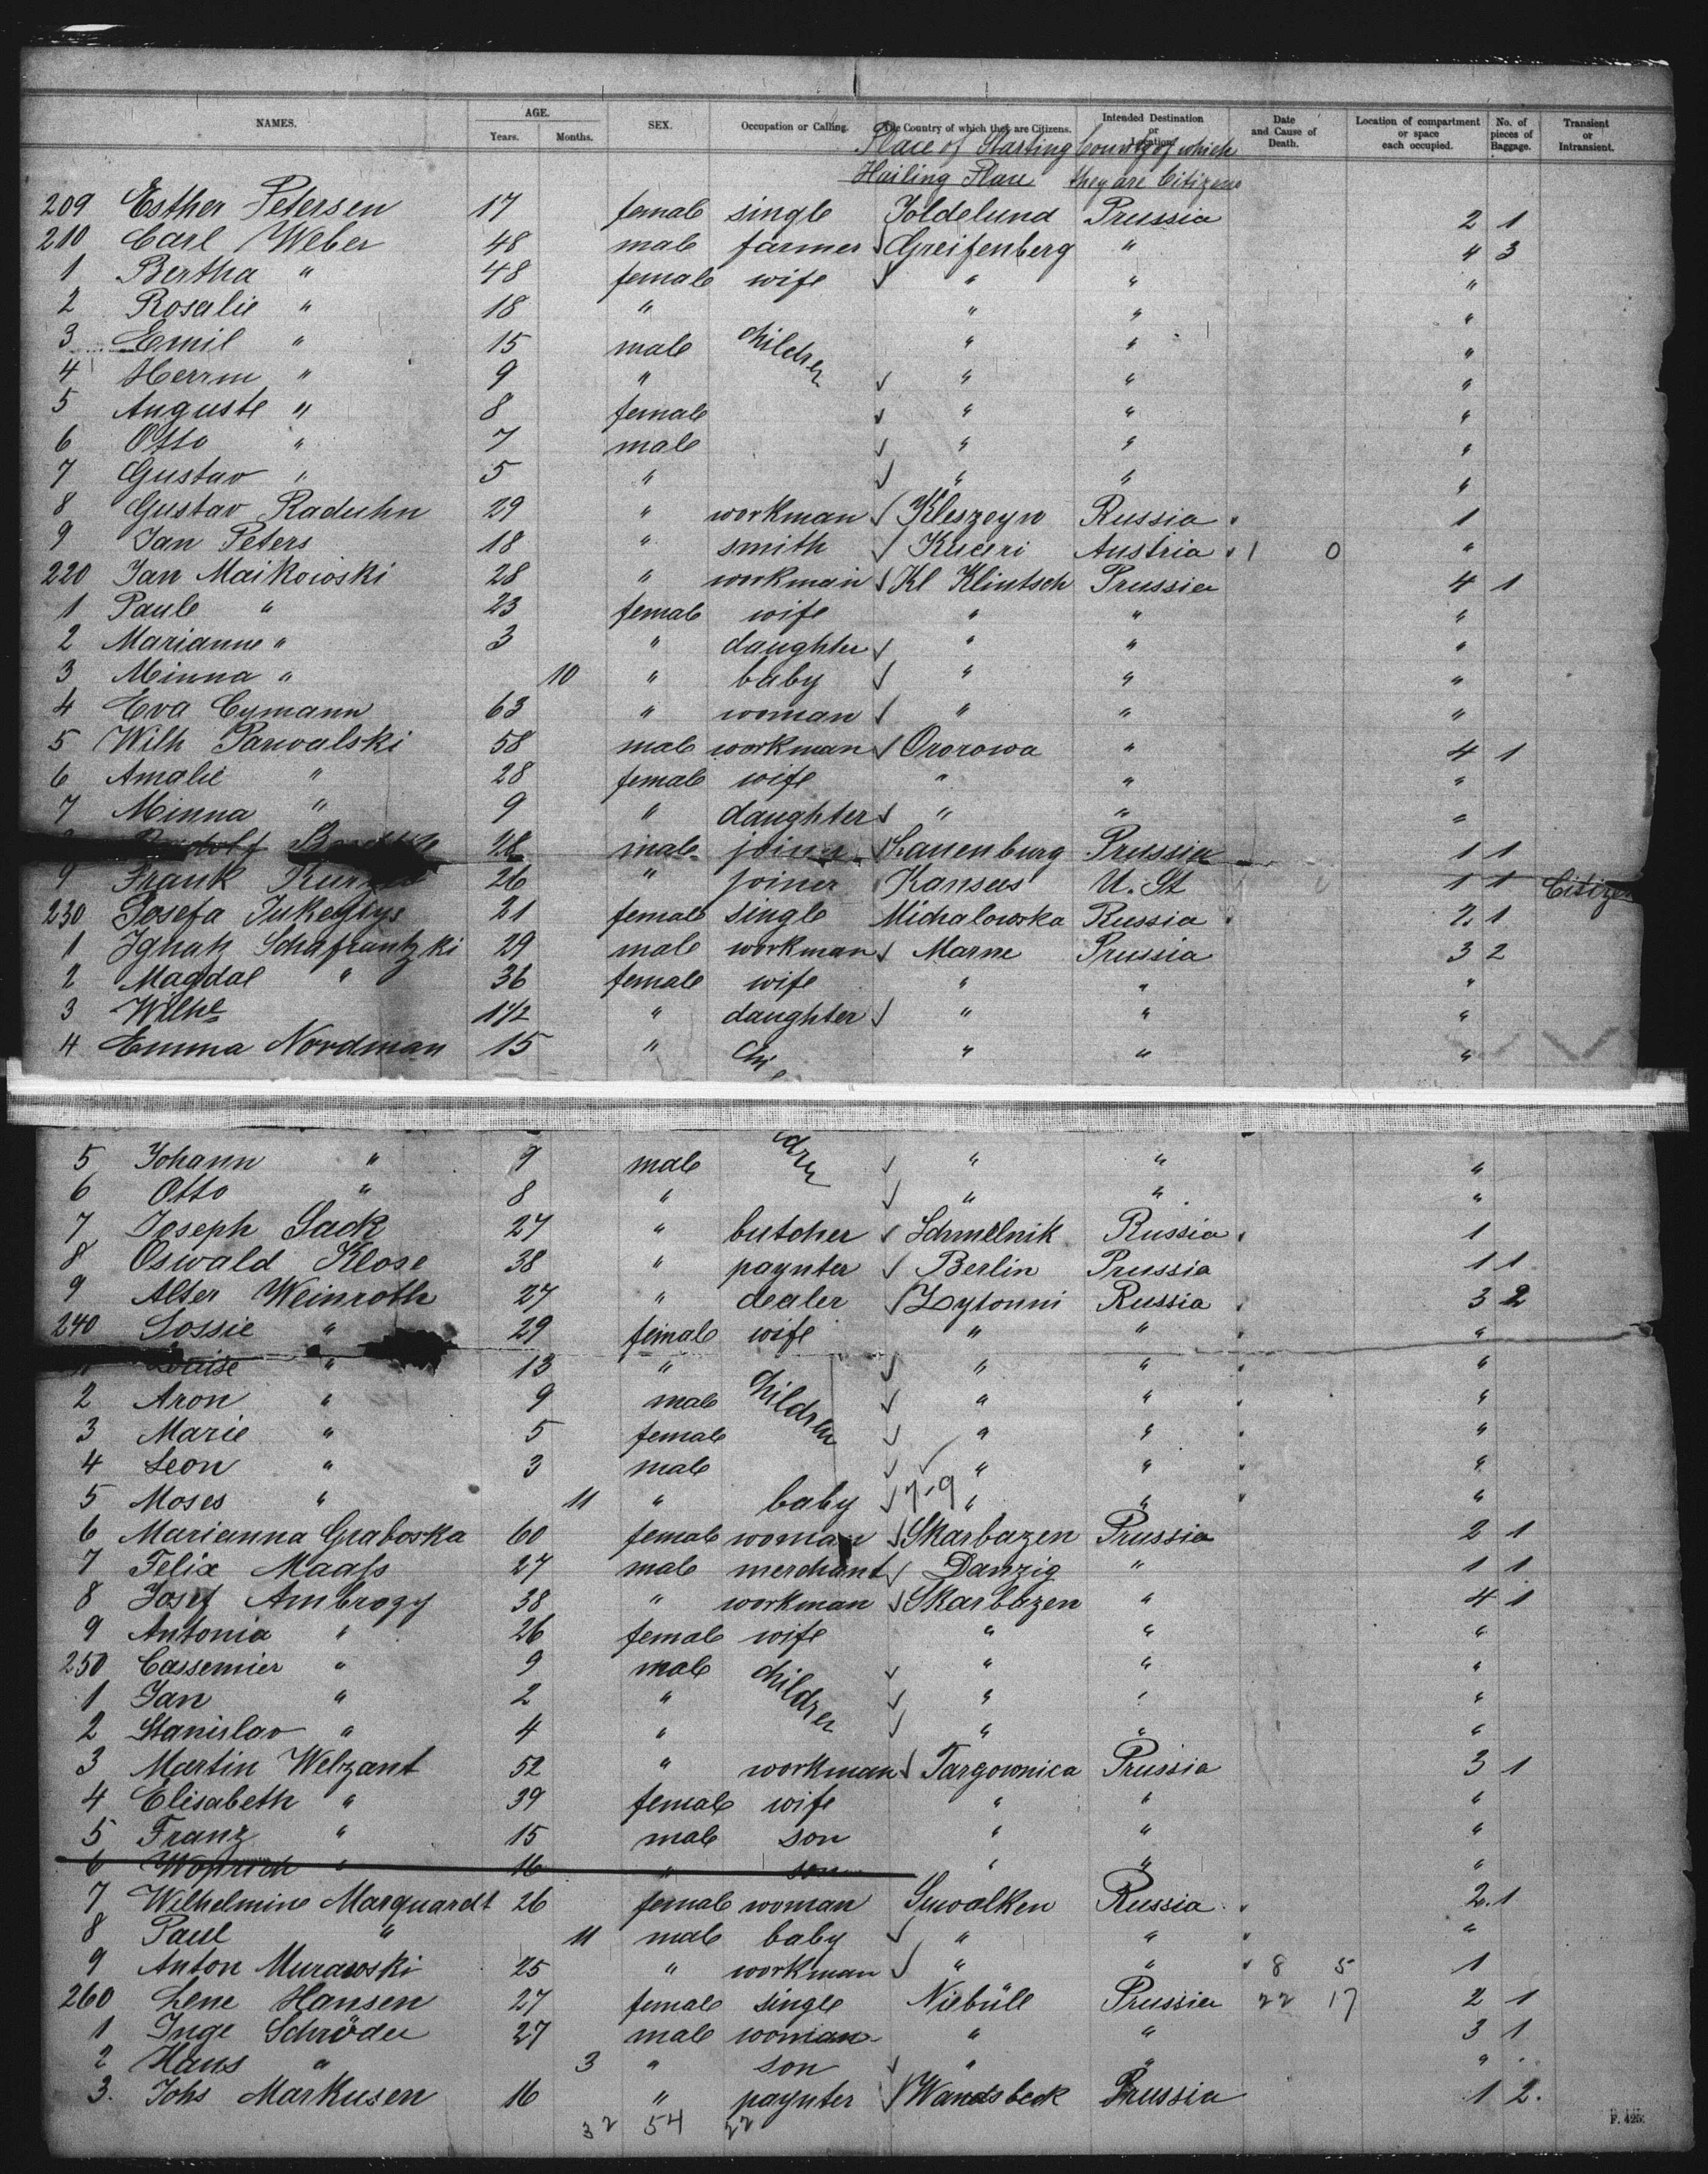 NAMES. AGE. Years. Months. SEX. Occupation or Calling. The Country of which they are Citizens. Intended Destination or Location. Date and Cause of Death. Location of compartment or space each occupied. No. of pieces of Baggage. Transient or Intransient.
Place of Starting County of which
Hailing Place they are Citizens
209 Esther Petersen 17 female single Joldelund Prussia 2 1
210 Carl Weber 48 male farmer √ Greifenberg " 4 3
1 Bertha " 48 female wife √ " " "
2 Rosalie " 18 " " " "
3 Emil " 15 male children " " "
4 Herrm " 9 " √ " " "
5 Auguste " 8 female √ " " "
6 Otto " 7 male √ " " "
7 Gustav " 5 " √ " " "
8 Gustav Raduhn 29 " workman √ Kleszeyn Russia 1
9 Jan Peters 18 " smith √ Kuceri Austria 1 0 "
220 Jan Maikowski 28 " workman √ Kl Klintsch Prussia 4 1
1 Paule " 23 female wife " " "
2 Marianne " 3 " daughter √ " " "
3 Minna " 10 " baby √ " " "
4 Eva Cymann 63 " woman √ " " "
5 Wilh Parwalski 58 male workman √ Ororowa " 4 1
6 Amalie " 28 female wife " " "
7 Minna " 9 " daughter √ " " "
28 male joiner √ Lauenburg Prussia 1 1
9 Frank 26 " joiner Kansas U. St 1 1 Citizen
230 Josefa 21 female single Michalowska Russia 2 1
1 Ignatz Schafrantzki 29 male workman √ Marne Prussia 3 2
2 Magdal " 36 female wife " " "
3 Wilhe 1 1/2 " daughter √ " " "
4 Emma Nordman 15 " children " " "
5 Johann " 9 male √ " " "
6 Otto " 8 " √ " " "
7 Joseph Sack 27 " butcher √ Schmelnik Russia 1
8 Oswald Klose 38 " paynter √ Berlin Prussia 1 1
9 Alter Weinroth 27 " dealer √ Zytonni Russia 3 2
240 Sossie " 29 female wife " " "
Louise " 13 " √ " " "
2 Aron " 9 male children √ " " "
3 Marie " 5 female √ " " "
4 Leon " 3 male √ " " "
5 Moses " 11 " baby √ 7-9 " " "
6 Marianna Graboska 60 female woman √ Skarbazen Prussia 2 1
7 Felix Maaſs 27 male merchant √ Danzig " 1 1
8 Josef Ambrogy 38 " workman √ Skarbazen " 4 1
9 Antonia " 26 female wife " " "
250 Cassemier " 9 male children √ " " "
1 Jan " 2 " √ " " "
2 Stanislav " 4 " √ " " "
3 Martin Welzant 52 " workman √ Targownica Prussia 3 1
4 Elisabeth " 39 female wife " " "
5 Franz " 15 male son " " "
6 " 16 " son " " "
7 Wilhelmine Marquardt 26 female woman Suwalken Russia 2. 1
8 Paul " 11 male baby √ " " "
9 Anton Murawski 25 " workman √ " " 8 5 1
260 Lene Hansen 27 female single Niebüll Prussia 22 17 2 1
1 Inge Schröder 27 male woman " " 3 1
2 Hans " 3 " son √ " " "
3. Johs Markusen 16 " paynter √ Wandsbeck Prussia 1 2.
32 54 22
F. 425.